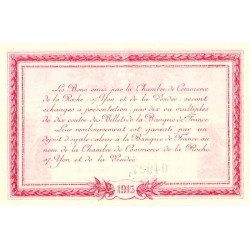 Les Bons émis par la Chambre de Commerce
de la Roche s/Yon et de la Vendée seront
échangés à présentation, par dix ou multiples
de dix contre des Billets de la Banque de France.
Leur remboursement est garanti par un
dépôt d'égale valeur à la Banque de France au
nom de la Chambre de Commerce de la Roche
s/Yon et de la Vendée.
1915